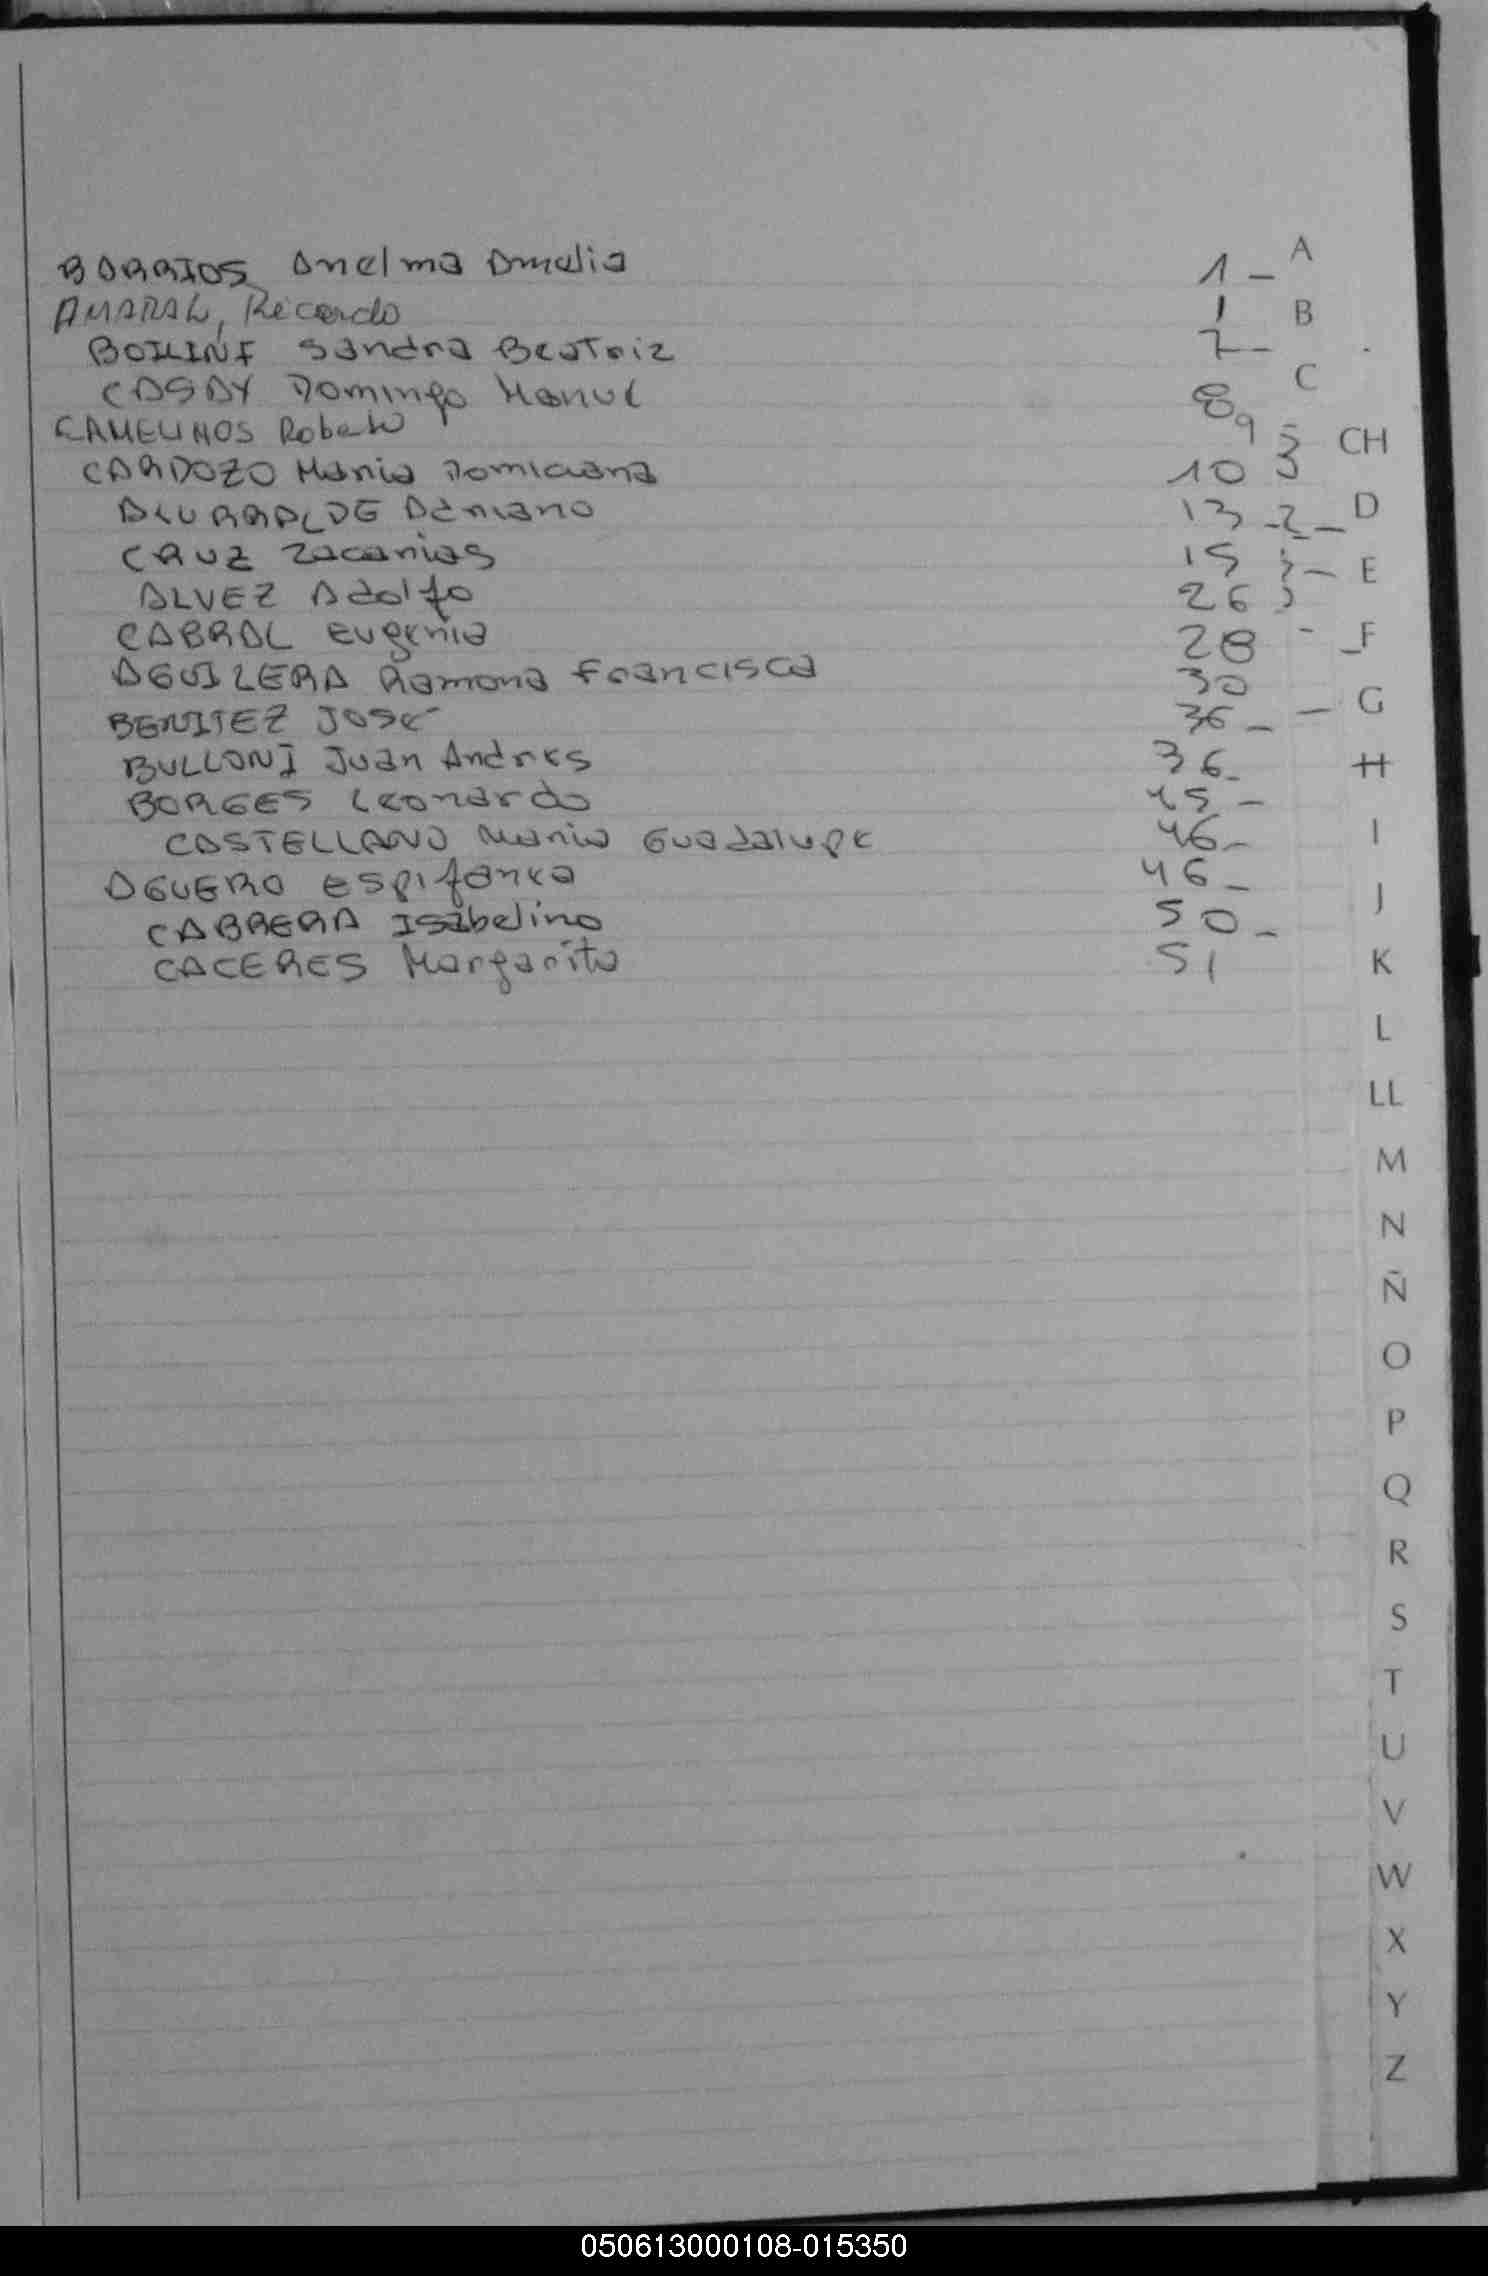 BARRIOS Anelma Amalia 1 -
AMARAL, Ricardo 1
BOILINI Sandra Beatriz 7 -
CASAY Domingo Manuel 8
CAMELINOS Roberto 9
CARDOZO Maria Domiciana 10
ALURRALDE Damiano 13 - 2 -
CRUZ Zacarias 15
ALVEZ Adolfo 26
CABRAL Eugenia 28
AGUILERA Ramona Francisca 30
BENITEZ José 36 -
BULLONI Juan Andres 36 -
BORGES Leonardo 45 -
CASTELLANO Maria Guadalupe 46 -
AGUERO Espifanea 46 -
CABRERA Isabelino 50 -
CACERES Margarita 51
A
B
C
CH
D
E
F
G
H
I
J
K
L
LL
M
N
Ñ
O
P
Q
R
S
T
U
V
W
X
Y
Z
050613000108-015350